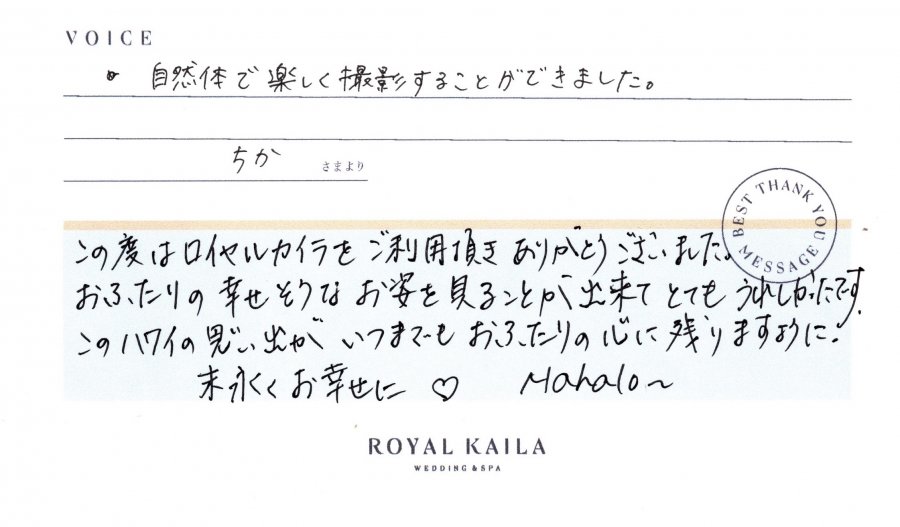 VOICE
• 自然体で楽しく撮影することができました。
ちか さまより
BEST THANK YOU MESSAGE
この度はロイヤルカイラをご利用頂きありがとうございました。
おふたりの幸せそうなお姿を見ることが出来てとてもうれしかったです。
このハワイの思い出がいつまでもおふたりの心に残りますように。
末永くお幸せに ♡ Mahalo〜
ROYAL KAILA
WEDDING & SPA